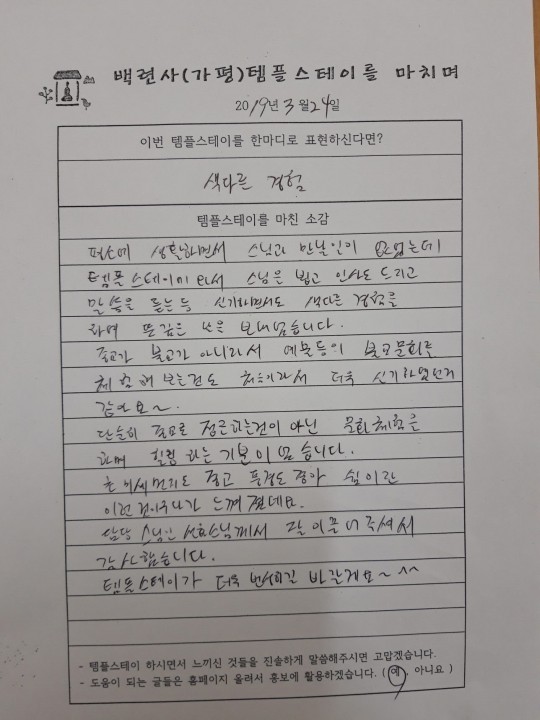 백련사(가평)템플스테이를 마치며
2019년 3월 24일
이번 템플스테이를 한마디로 표현하신다면?
색다른 경험
템플스테이를 마친 소감
평소에 생활하면서 스님과 만날일이 없었는데
템플스테이에 와서 스님을 뵙고 인사도 드리고
말씀을 듣는등 신기하면서도 색다른 경험을
하며 뜻깊은 보냈습니다.
종교가 불교가 아니라서 예불등의 불교문화를
체험해 보는건도 처음이라서 더욱 신기하였던거
같아요~
단순히 종교로 접근하는건이 아닌 문화체험을
하며 힐링 하는 기분이 었습니다.
미세먼지도 좋고 풍경도 좋아 쉼이란
이런 것이구나가 느껴졌네요.
담당 스님인 께서 잘 이끌어주셔서
감사했습니다.
템플스테이가 더욱 번창하길 바랄게요~ ^^
- 템플스테이 하시면서 느끼신 것들을 진솔하게 말씀해주시면 고맙겠습니다.
- 도움이 되는 글들은 홈페이지 올려서 홍보에 활용하겠습니다. ( 예, 아니요 )